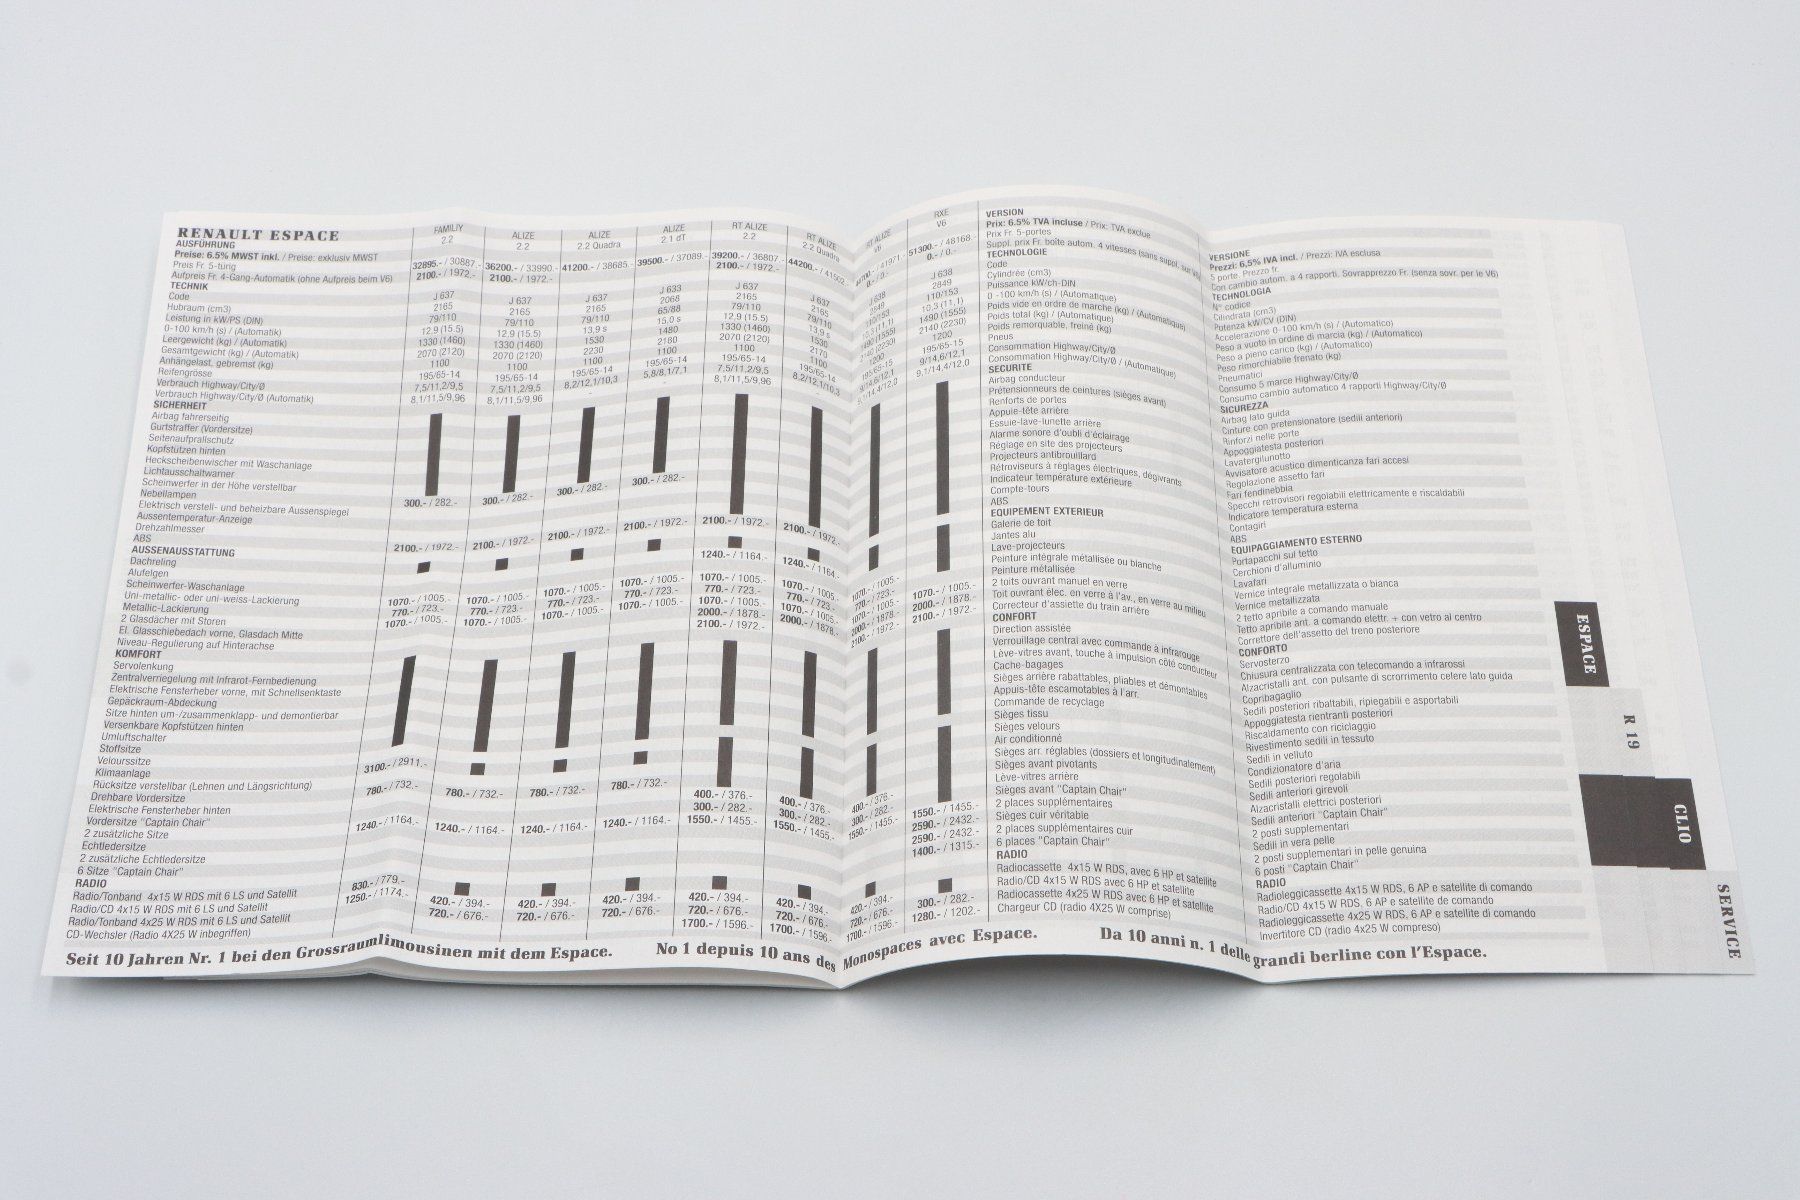 RENAULT ESPACE
FAMILIY 2.2
ALIZE 2.2
ALIZE 2.2 Quadra
ALIZE 2.1 dT
RT ALIZE 2.2
RT ALIZE 2.2 Quadra
RT ALIZE V6
RXE V6
AUSFÜHRUNG
Preise: 6.5% MWST inkl. / Preise: exklusiv MWST
Preis Fr. 5-türig 32895.- / 30887.- 36200.- / 33990.- 41200.- / 38685.- 39500.- / 37089.- 39200.- / 36807.- 44200.- / 41502.- 51300.- / 48168.-
Aufpreis Fr. 4-Gang-Automatik (ohne Aufpreis beim V6) 2100.- / 1972.- 2100.- / 1972.- 2100.- / 1972.- 0.- / 0.- 0.- / 0.-
TECHNIK
Code J 637 J 637 J 637 J 633 J 637 J 637 J 638 J 638
Hubraum (cm3) 2165 2165 2165 2068 2165 2165 2849 2849
Leistung in kW/PS (DIN) 79/110 79/110 79/110 65/88 79/110 79/110 110/153 110/153
0-100 km/h (s) / (Automatik) 12,9 (15.5) 12,9 (15.5) 13,9 s 15,0 s 12,9 (15.5) 13,9 s 10,3 (11,1) 10,3 (11,1)
Leergewicht (kg) / (Automatik) 1330 (1460) 1330 (1460) 1530 1480 1330 (1460) 1530 1490 (1555) 1490 (1555)
Gesamtgewicht (kg) / (Automatik) 2070 (2120) 2070 (2120) 2230 2180 2070 (2120) 2170 2140 (2230) 2140 (2230)
Anhängelast, gebremst (kg) 1100 1100 1100 1100 1100 1100 1200 1200
Reifengrösse 195/65-14 195/65-14 195/65-14 195/65-14 195/65-14 195/65-14 195/65-15 195/65-15
Verbrauch Highway/City/Ø 7,5/11,2/9,5 7,5/11,2/9,5 8,2/12,1/10,3 5,8/8,1/7,1 7,5/11,2/9,5 8,2/12,1/10,3 9/14,6/12,1 9/14,6/12,1
Verbrauch Highway/City/Ø (Automatik) 8,1/11,5/9,96 8,1/11,5/9,96 - - 8,1/11,5/9,96 - 9,1/14,4/12,0 9,1/14,4/12,0
SICHERHEIT
Airbag fahrerseitig
Gurtstraffer (Vordersitze)
Seitenaufprallschutz
Kopfstützen hinten
Heckscheibenwischer mit Waschanlage
Lichtausschaltwarner
Scheinwerfer in der Höhe verstellbar
Nebellampen 300.- / 282.- 300.- / 282.- 300.- / 282.- 300.- / 282.-
Elektrisch verstell- und beheizbare Aussenspiegel
Aussentemperatur-Anzeige
Drehzahlmesser
ABS 2100.- / 1972.- 2100.- / 1972.- 2100.- / 1972.- 2100.- / 1972.- 2100.- / 1972.- 2100.- / 1972.-
AUSSENAUSSTATTUNG
Dachreling
Alufelgen 1240.- / 1164.- 1240.- / 1164.-
Scheinwerfer-Waschanlage
Uni-metallic- oder uni-weiss-Lackierung 1070.- / 1005.- 1070.- / 1005.- 1070.- / 1005.- 1070.- / 1005.- 1070.- / 1005.- 1070.- / 1005.- 1070.- / 1005.- 1070.- / 1005.-
Metallic-Lackierung 770.- / 723.- 770.- / 723.- 770.- / 723.- 770.- / 723.- 770.- / 723.- 770.- / 723.-
2 Glasdächer mit Storen 1070.- / 1005.- 1070.- / 1005.- 1070.- / 1005.- 1070.- / 1005.- 1070.- / 1005.- 1070.- / 1005.- 1070.- / 1005.-
El. Glasschiebedach vorne, Glasdach Mitte 2000.- / 1878.- 2000.- / 1878.- 2000.- / 1878.- 2000.- / 1878.-
Niveau-Regulierung auf Hinterachse 2100.- / 1972.- 2100.- / 1972.- 2100.- / 1972.-
KOMFORT
Servolenkung
Zentralverriegelung mit Infrarot-Fernbedienung
Elektrische Fensterheber vorne, mit Schnellsenktaste
Gepäckraum-Abdeckung
Sitze hinten um-/zusammenklapp- und demontierbar
Versenkbare Kopfstützen hinten
Umluftschalter
Stoffsitze
Velourssitze
Klimaanlage 3100.- / 2911.-
Rücksitze verstellbar (Lehnen und Längsrichtung)
Drehbare Vordersitze 780.- / 732.- 780.- / 732.- 780.- / 732.- 780.- / 732.-
Elektrische Fensterheber hinten
Vordersitze "Captain Chair" 400.- / 376.- 400.- / 376.- 400.- / 376.-
2 zusätzliche Sitze 1240.- / 1164.- 1240.- / 1164.- 1240.- / 1164.- 1240.- / 1164.- 300.- / 282.- 300.- / 282.- 300.- / 282.-
Echtledersitze 1550.- / 1455.- 1550.- / 1455.- 1550.- / 1455.- 1550.- / 1455.-
2 zusätzliche Echtledersitze 2590.- / 2432.- 2590.- / 2432.-
6 Sitze "Captain Chair" 1400.- / 1315.-
RADIO
Radio/Tonband 4x15 W RDS mit 6 LS und Satellit 830.- / 779.-
Radio/CD 4x15 W RDS mit 6 LS und Satellit 1250.- / 1174.- 420.- / 394.- 420.- / 394.- 420.- / 394.- 420.- / 394.- 420.- / 394.- 420.- / 394.- 420.- / 394.-
Radio/Tonband 4x25 W RDS mit 6 LS und Satellit 720.- / 676.- 720.- / 676.- 720.- / 676.- 720.- / 676.- 720.- / 676.- 720.- / 676.- 720.- / 676.- 300.- / 282.-
CD-Wechsler (Radio 4X25 W inbegriffen) 1700.- / 1596.- 1700.- / 1596.- 1700.- / 1596.- 1280.- / 1202.-
VERSION
Prix: 6.5% TVA incluse / Prix: TVA exclue
Prix Fr. 5-portes
Suppl. prix Fr. boîte autom. 4 vitesses (sans suppl. sur V6)
TECHNOLOGIE
Code
Cylindrée (cm3)
Puissance kW/ch-DIN
0 -100 km/h (s) / (Automatique)
Poids vide en ordre de marche (kg) / (Automatique)
Poids total (kg) / (Automatique)
Poids remorquable, freiné (kg)
Pneus
Consommation Highway/City/Ø
Consommation Highway/City/Ø / (Automatique)
SECURITE
Airbag conducteur
Prétensionneurs de ceintures (sièges avant)
Renforts de portes
Appuie-tête arrière
Essuie-lave-lunette arrière
Alarme sonore d'oubli d'éclairage
Réglage en site des projecteurs
Projecteurs antibrouillard
Rétroviseurs à réglages électriques, dégivrants
Indicateur température extérieure
Compte-tours
ABS
EQUIPEMENT EXTERIEUR
Galerie de toit
Jantes alu
Lave-projecteurs
Peinture intégrale métallisée ou blanche
Peinture métallisée
2 toits ouvrant manuel en verre
Toit ouvrant élec. en verre à l'av., en verre au milieu
Correcteur d'assiette du train arrière
CONFORT
Direction assistée
Verrouillage central avec commande à infrarouge
Lève-vitres avant, touche à impulsion côté conducteur
Cache-bagages
Sièges arrière rabattables, pliables et démontables
Appuis-tête escamotables à l'arr.
Commande de recyclage
Sièges tissu
Sièges velours
Air conditionné
Sièges arr. réglables (dossiers et longitudinalement)
Sièges avant pivotants
Lève-vitres arrière
Sièges avant "Captain Chair"
2 places supplémentaires
Sièges cuir véritable
2 places supplémentaires cuir
6 places "Captain Chair"
RADIO
Radiocassette 4x15 W RDS, avec 6 HP et satellite
Radio/CD 4x15 W RDS avec 6 HP et satellite
Radiocassette 4x25 W RDS avec 6 HP et satellite
Chargeur CD (radio 4X25 W comprise)
VERSIONE
Prezzi: 6,5% IVA incl. / Prezzi: IVA esclusa
5 porte. Prezzo fr.
Con cambio autom. a 4 rapporti. Sovrapprezzo Fr. (senza sovr. per le V6)
TECHNOLOGIA
N° codice
Cilindrata (cm3)
Potenza kW/CV (DIN)
Accelerazione 0-100 km/h (s) / (Automatico)
Peso a vuoto in ordine di marcia (kg) / (Automatico)
Peso a pieno carico (kg) / (Automatico)
Peso rimorchiabile frenato (kg)
Pneumatici
Consumo 5 marce Highway/City/Ø
Consumo cambio automatico 4 rapporti Highway/City/Ø
SICUREZZA
Airbag lato guida
Cinture con pretensionatore (sedili anteriori)
Rinforzi nelle porte
Appoggiatesta posteriori
Lavatergilunotto
Avvisatore acustico dimenticanza fari accesi
Regolazione assetto fari
Fari fendinebbia
Specchi retrovisori regolabili elettricamente e riscaldabili
Indicatore temperatura esterna
Contagiri
ABS
EQUIPAGGIAMENTO ESTERNO
Portapacchi sul tetto
Cerchioni d'alluminio
Lavafari
Vernice integrale metallizzata o bianca
Vernice metallizzata
2 tetto apribile a comando manuale
Tetto apribile ant. a comando elettr. + con vetro al centro
Correttore dell'assetto del treno posteriore
CONFORTO
Servosterzo
Chiusura centralizzata con telecomando a infrarossi
Alzacristalli ant. con pulsante di scrorrimento celere lato guida
Copribagaglio
Sedili posteriori ribaltabili, ripiegabili e asportabili
Appoggiatesta rientranti posteriori
Riscaldamento con riciclaggio
Rivestimento sedili in tessuto
Sedili in velluto
Condizionatore d'aria
Sedili posteriori regolabili
Sedili anteriori girevoli
Alzacristalli elettrici posteriori
Sedili anteriori "Captain Chair"
2 posti supplementari
Sedili in vera pelle
2 posti supplementari in pelle genuina
6 posti "Captain Chair"
RADIO
Radioleggicassette 4x15 W RDS, 6 AP e satellite di comando
Radio/CD 4x15 W RDS, 6 AP e satellite de comando
Radioleggicassette 4x25 W RDS, 6 AP e satellite di comando
Invertitore CD (radio 4X25 W compreso)
Seit 10 Jahren Nr. 1 bei den Grossraumlimousinen mit dem Espace.
No 1 depuis 10 ans des Monospaces avec Espace.
Da 10 anni n. 1 delle grandi berline con l'Espace.
ESPACE
R 19
CLIO
SERVICE